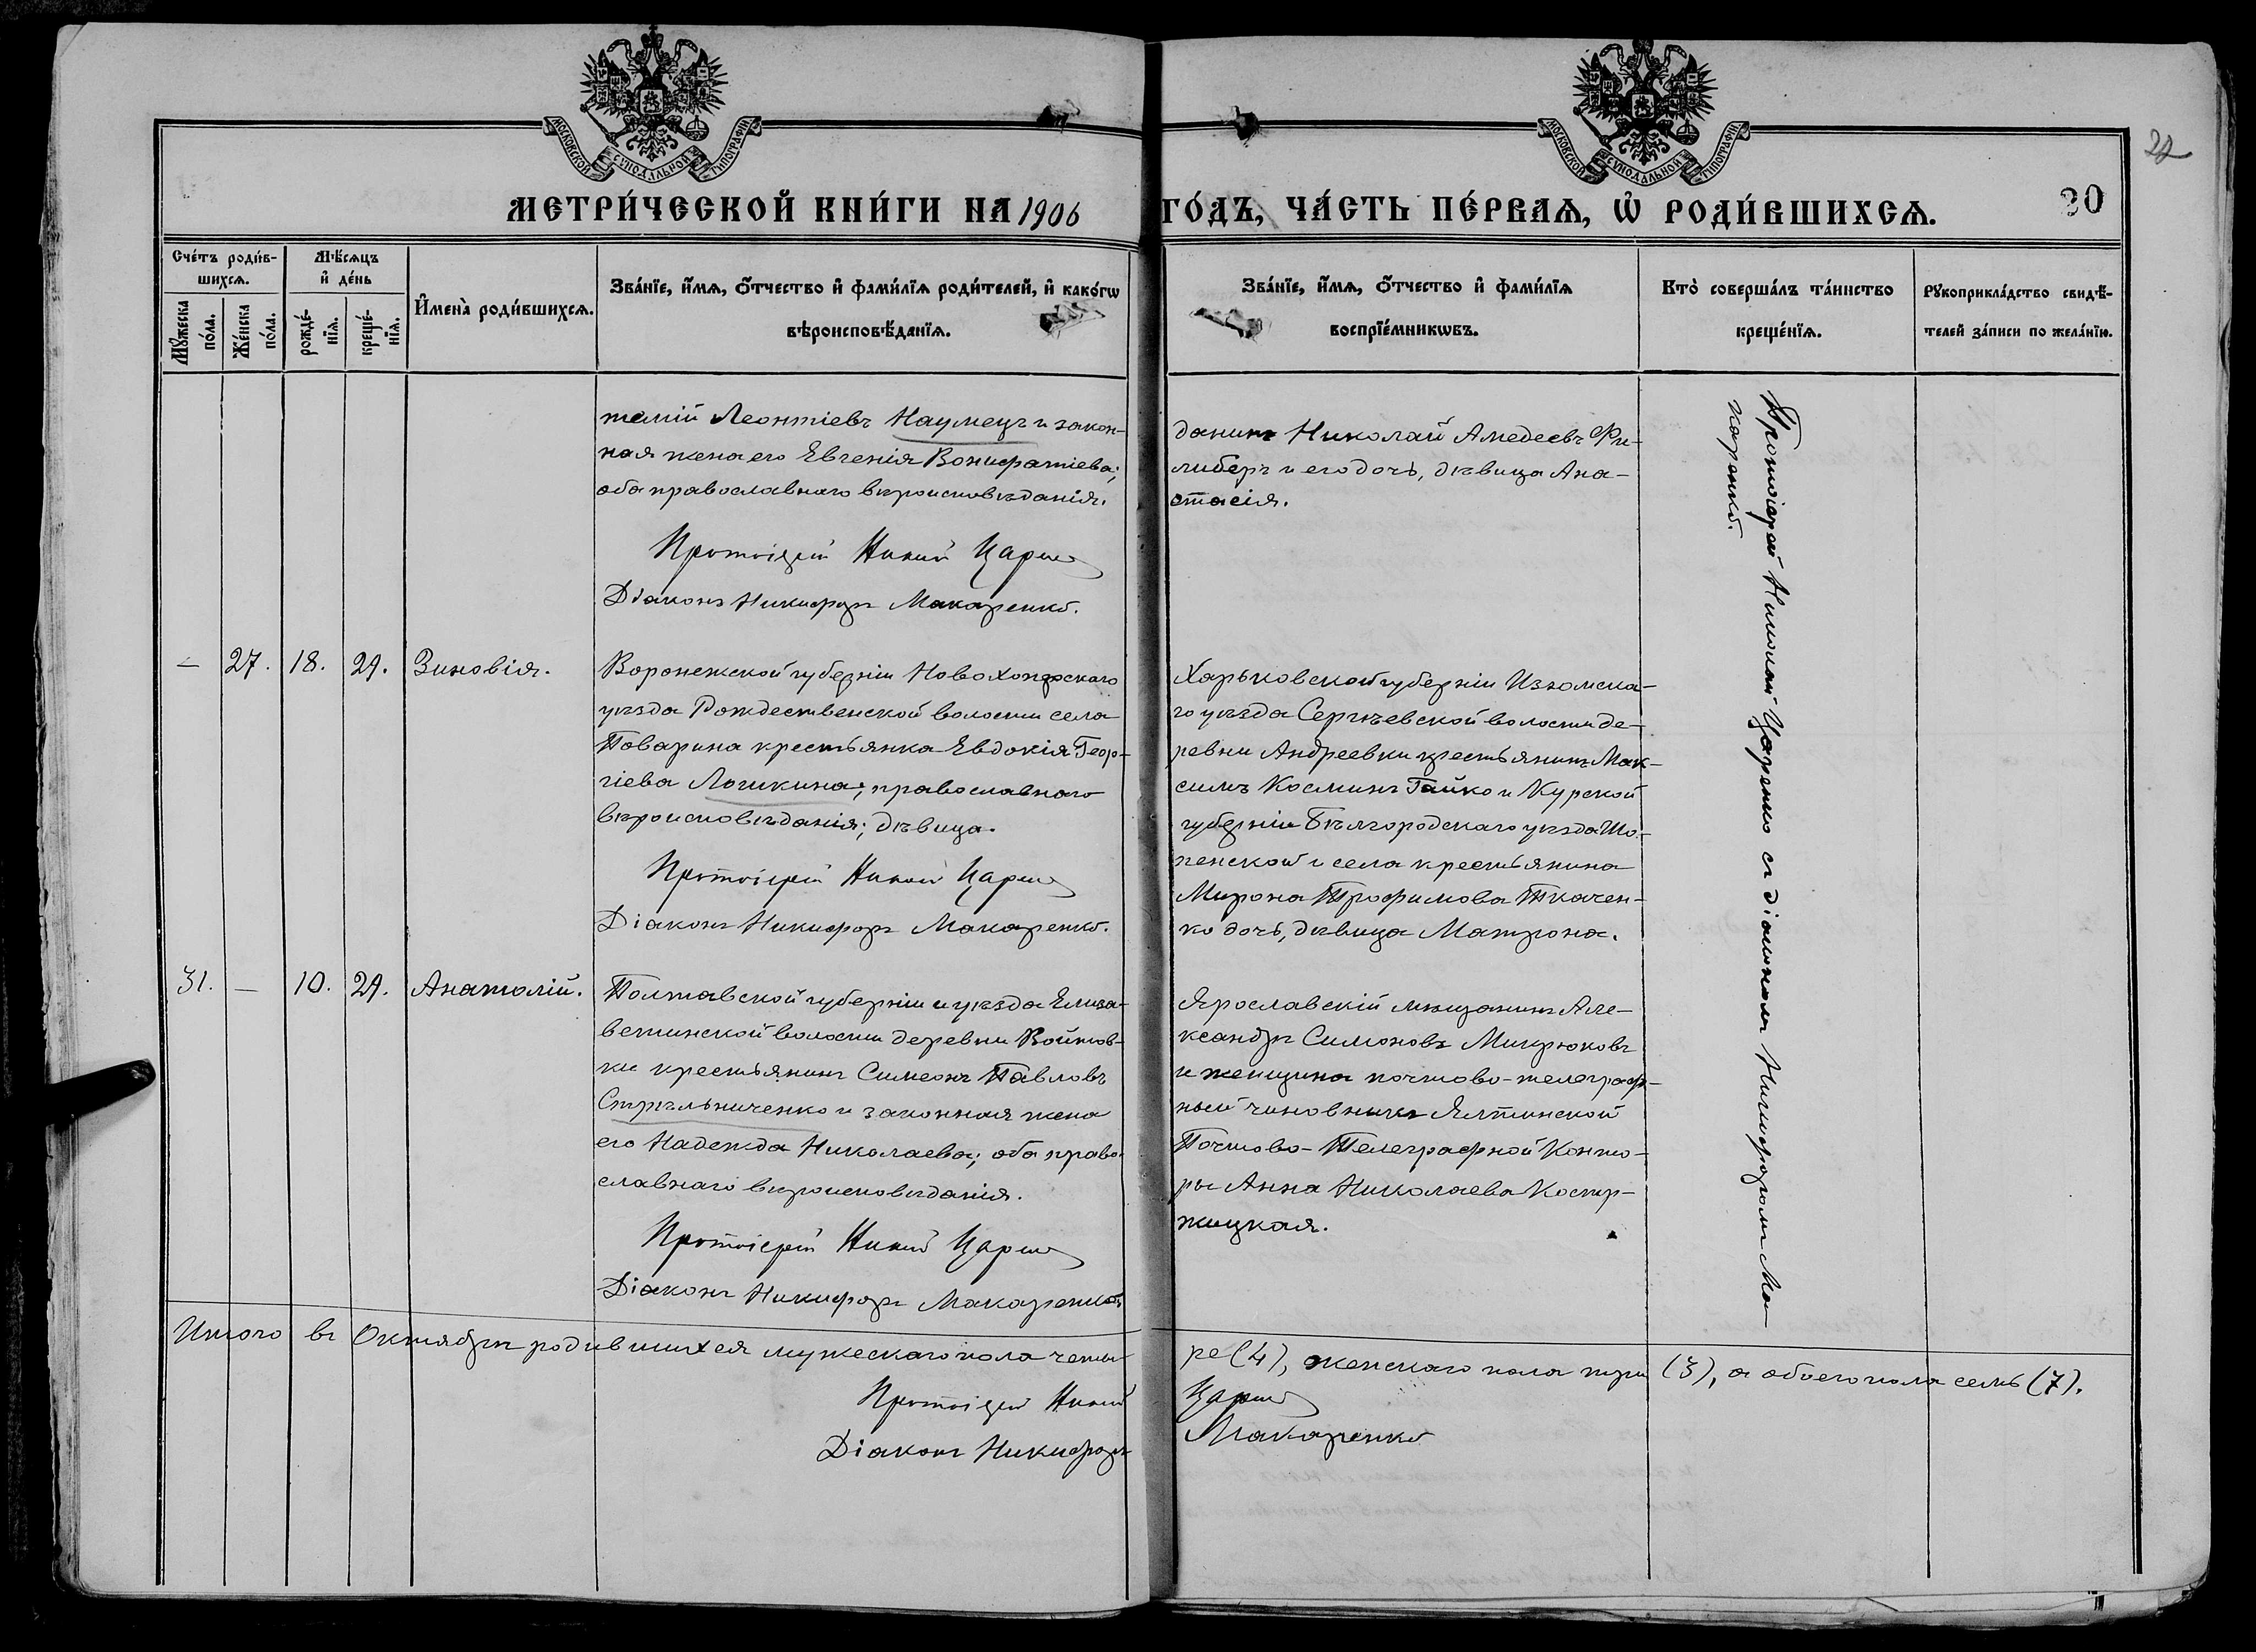 МОСКОВСКОЙ СѴНОДАЛЬНОЙ ТИПОГРАФІИ
МОСКОВСКОЙ СѴНОДАЛЬНОЙ ТИПОГРАФІИ
МЕТРИ́ЧЕСКОЙ КНИ́ГИ НА 1906
ГО́ДЪ, ЧА́СТЬ ПЕ́РВАѦ, Ѡ҆ РОДИ́ВШИХСѦ.
30
Сче́тъ роди́в-
шихсѧ.
Мѣ́сѧцъ
и҆ де́нь
Мꙋ́жеска
по́ла.
Же́нска
по́ла.
рожде́-
нїѧ.
креще́-
нїѧ.
И҆мена̀ роди́вшихсѧ.
Зва́нїе, и҆́мѧ, ѻ҆́тчество и҆ фами́лїѧ роди́телей, и҆ како́гѡ
вѣроисповѣ́данїѧ.
Зва́нїе, и҆́мѧ, ѻ҆́тчество и҆ фами́лїѧ
воспрїе́мникѡвъ.
Кто̀ соверша́лъ та́инство
креще́нїѧ.
Рꙋкоприкла́дство свидѣ́-
телей за́писи по жела́нїю.
темій Леонтіевъ Наумецъ и закон-
ная жена его Евгенія Вонифатіева;
оба православнаго вѣроисповѣданія.
Протоіерей Николай Царенко
Діаконъ Никифоръ Макаренко.
данинъ Николай Амедеевъ Фи-
либеръ и его дочь, дѣвица Ана-
стасія.
Протоіерей Николай Царенко съ діакономъ Никифоромъ Ма-
каренко.
— 27. 18. 29. Зиновія.
Воронежской губерніи Новохоперскаго
уѣзда Рождественской волости села
Поварина крестьянка Евдокія Геор-
гіева Логикина; православнаго
вѣроисповѣданія; дѣвица.
Протоіерей Николай Царенко
Діаконъ Никифоръ Макаренко.
Харьковской губерніи Изюмска-
го уѣзда Сергѣевской волости де-
ревни Андреевки крестьянинъ Мак-
симъ Косминъ Гайко и Курской
губерніи Бѣлгородскаго уѣзда Шо-
пенской и села крестьянина
Мирона Трофимова Ткачен-
ко дочь, дѣвица Матрона.
31. — 10. 29. Анатолій.
Полтавской губерніи и уѣзда Елиза-
ветинской волости деревни Войнов-
ки крестьянинъ Симеонъ Павловъ
Стрѣльниченко и законная жена
его Надежда Николаева; оба право-
славнаго вѣроисповѣданія.
Протоіерей Николай Царенко
Діаконъ Никифоръ Макаренко
Ярославскій мѣщанинъ Але-
ксандръ Симоновъ Мизрюковъ
и женщина почтово-телеграф-
ный чиновникъ Ялтинской
Почтово-Телеграфной Конто-
ры Анна Николаева Костр-
жицкая.
Итого въ Октябрѣ родившихся мужескаго пола четы-
ре (4), женскаго пола три (3), а обоего пола семь (7).
Протоіерей Николай
Царенко
Діаконъ Никифоръ
Макаренко